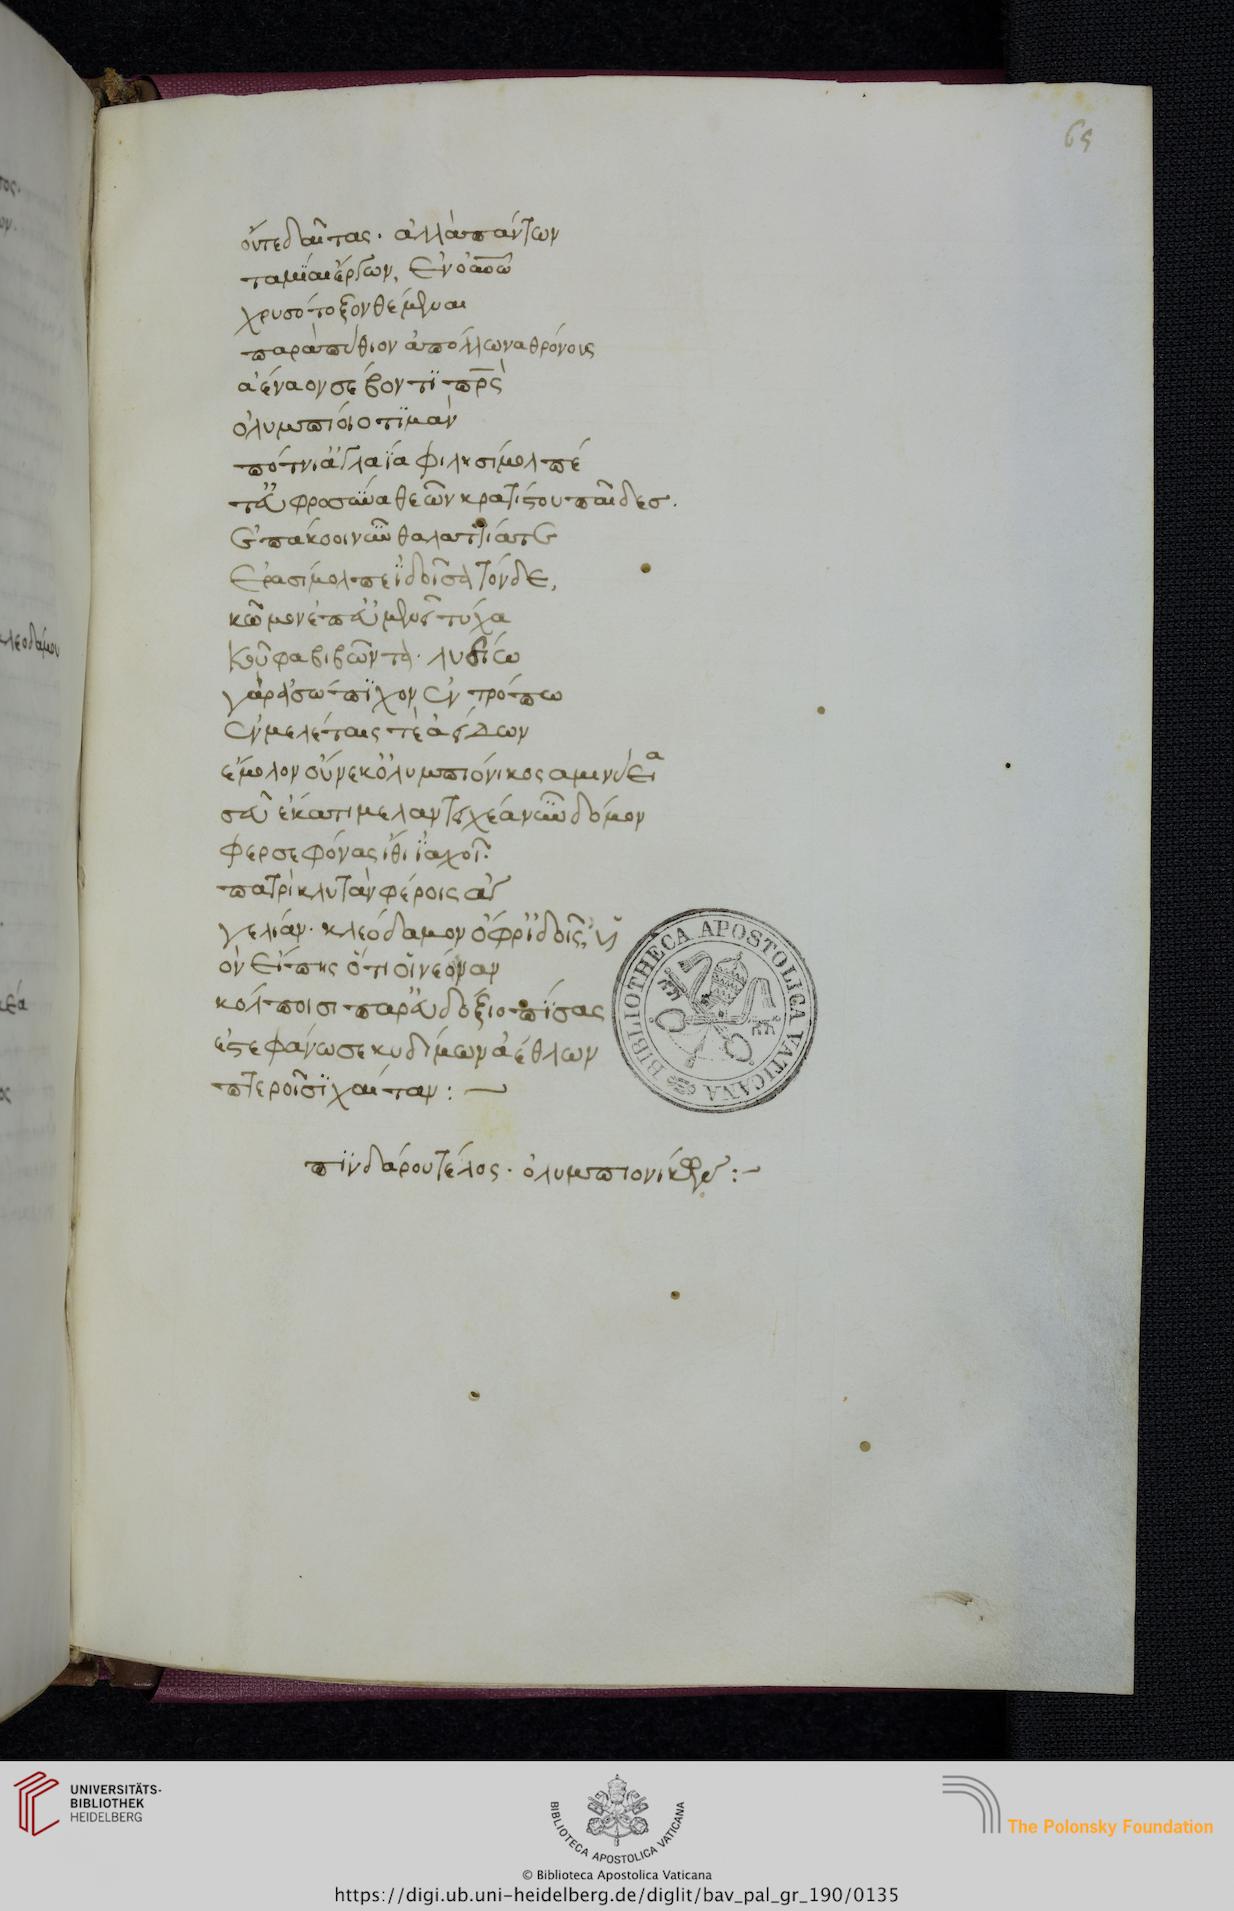 65
οὔτε δαῖτας· ἀλλὰ πάντων
ταμίαι ἔργων, ἐν οὐανῶ
χρυσότοξον θέμεναι
παρὰ πύθιον ἀπόλλωνα θρόνους
ἀέναον σέβοντι πρς
ὀλυμπίοιο τιμὰν
πότνι ἀγλαΐα φιλησίμολπέ
τ' εὐφροσύνα θεῶν κρατίστου παῖδες.
ἐπάκοοι νῦν θαλατιά τε
ἐρασίμολπε ἰδοῖσα τόνδε,
κῶμον ἐπ' εὐμενεῖ τύχα
κοῦφα βιβῶντα· λυδίω
γὰρ ἀσώπιχον ἐν τρόπω
ἐν μελέταις τε ἀείδων
ἔμολον οὕνεκ ὀλυμπιόνικος ἁ μινύεια
σεῦ ἕκατι μελαντειχέα νῦν δόμον
φερσεφόνας ἴθι ἰαχοῖ
πατρὶ κλυτὰν φέροις' ἀγ
γελίαν· κλεόδαμον ὄφρ' ἰδοῖσ', υἱ
ὸν εἴπης ὅτι οἱ νέαν
κόλποισι παρ' εὐδόξιο πίσας
ἐστεφάνωσε κυδίμων ἀέθλων
πτεροῖσι χαίταν :—
πινδάρου τέλος· ὀλυμπιονίκαι :—
κλεοδάμου
BIBLIOTHECA APOSTOLICA VATICANA
UNIVERSITÄTS-
BIBLIOTHEK
HEIDELBERG
BIBLIOTECA APOSTOLICA VATICANA
The Polonsky Foundation
© Biblioteca Apostolica Vaticana
https://digi.ub.uni-heidelberg.de/diglit/bav_pal_gr_190/0135